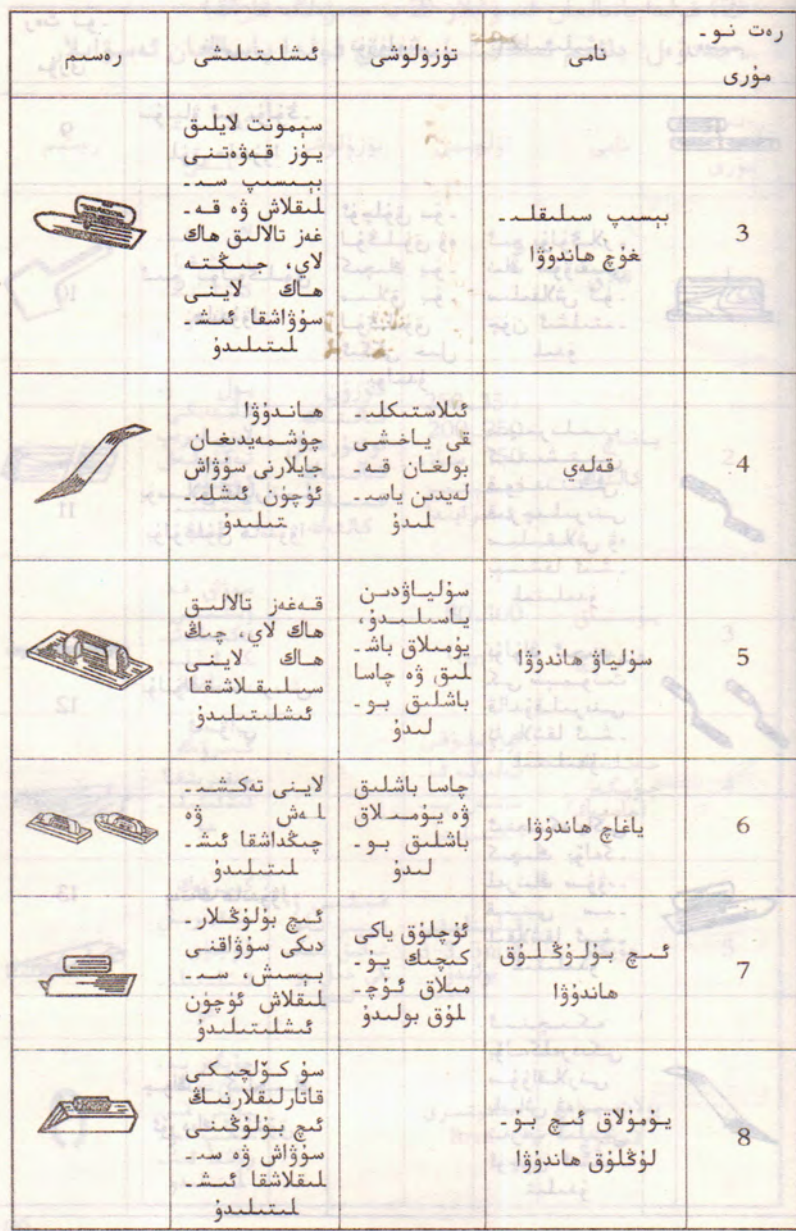 رەت نو-
مۇرى
نامى
تۈزۈلۈشى
ئىشلىتىلىشى
رەسىم
3
بېسىپ سىلىقلى-
غۇچ ھاندۇۋا
سېمونت لايلىق
يۈز قەۋەتنى
بېسىپ سى-
لىقلاش ۋە قە-
غەز تالالىق ھاك
لاي، جىڭتە
ھاك لاينى
سۇۋاشقا ئىش-
لىتىلىدۇ
4
قەلەي
ئىلاستىكلى-
قى ياخشى
بولغان قە-
لەيدىن ياسى-
لىدۇ
ھاندۇۋا
چۈشمەيدىغان
جايلارنى سۇۋاش
ئۈچۈن ئىشلى-
تىلىدۇ
5
سۇلياۋ ھاندۇۋا
سۇلياۋدىن
ياسىلىدۇ،
يۇمىلاق باش-
لىق ۋە چاسا
باشلىق بو-
لىدۇ
قەغەز تالالىق
ھاك لاي، چىڭ
ھاك لاينى
سىلىقلاشقا
ئىشلىتىلىدۇ
6
ياغاچ ھاندۇۋا
چاسا باشلىق
ۋە يۇمىلاق
باشلىق بو-
لىدۇ
لاينى تەكشى-
لەش ۋە
چىڭداشقا ئىش-
لىتىلىدۇ
7
ئىچ بۇلۇڭلۇق
ھاندۇۋا
ئۇچلۇق ياكى
كىچىك يۇ-
مىلاق ئۇچ-
لۇق بولىدۇ
ئىچ بۇلۇڭلار-
دىكى سۇۋاقنى
بېسىش، سى-
لىقلاش ئۈچۈن
ئىشلىتىلىدۇ
8
يۇمۇلاق ئىچ بۇ-
لۇڭلۇق ھاندۇۋا
سۇ كۆلچىكى
قاتارلىقلارنىڭ
ئىچ بۇلۇڭىنى
سۇۋاش ۋە سى-
لىقلاشقا ئىش-
لىتىلىدۇ